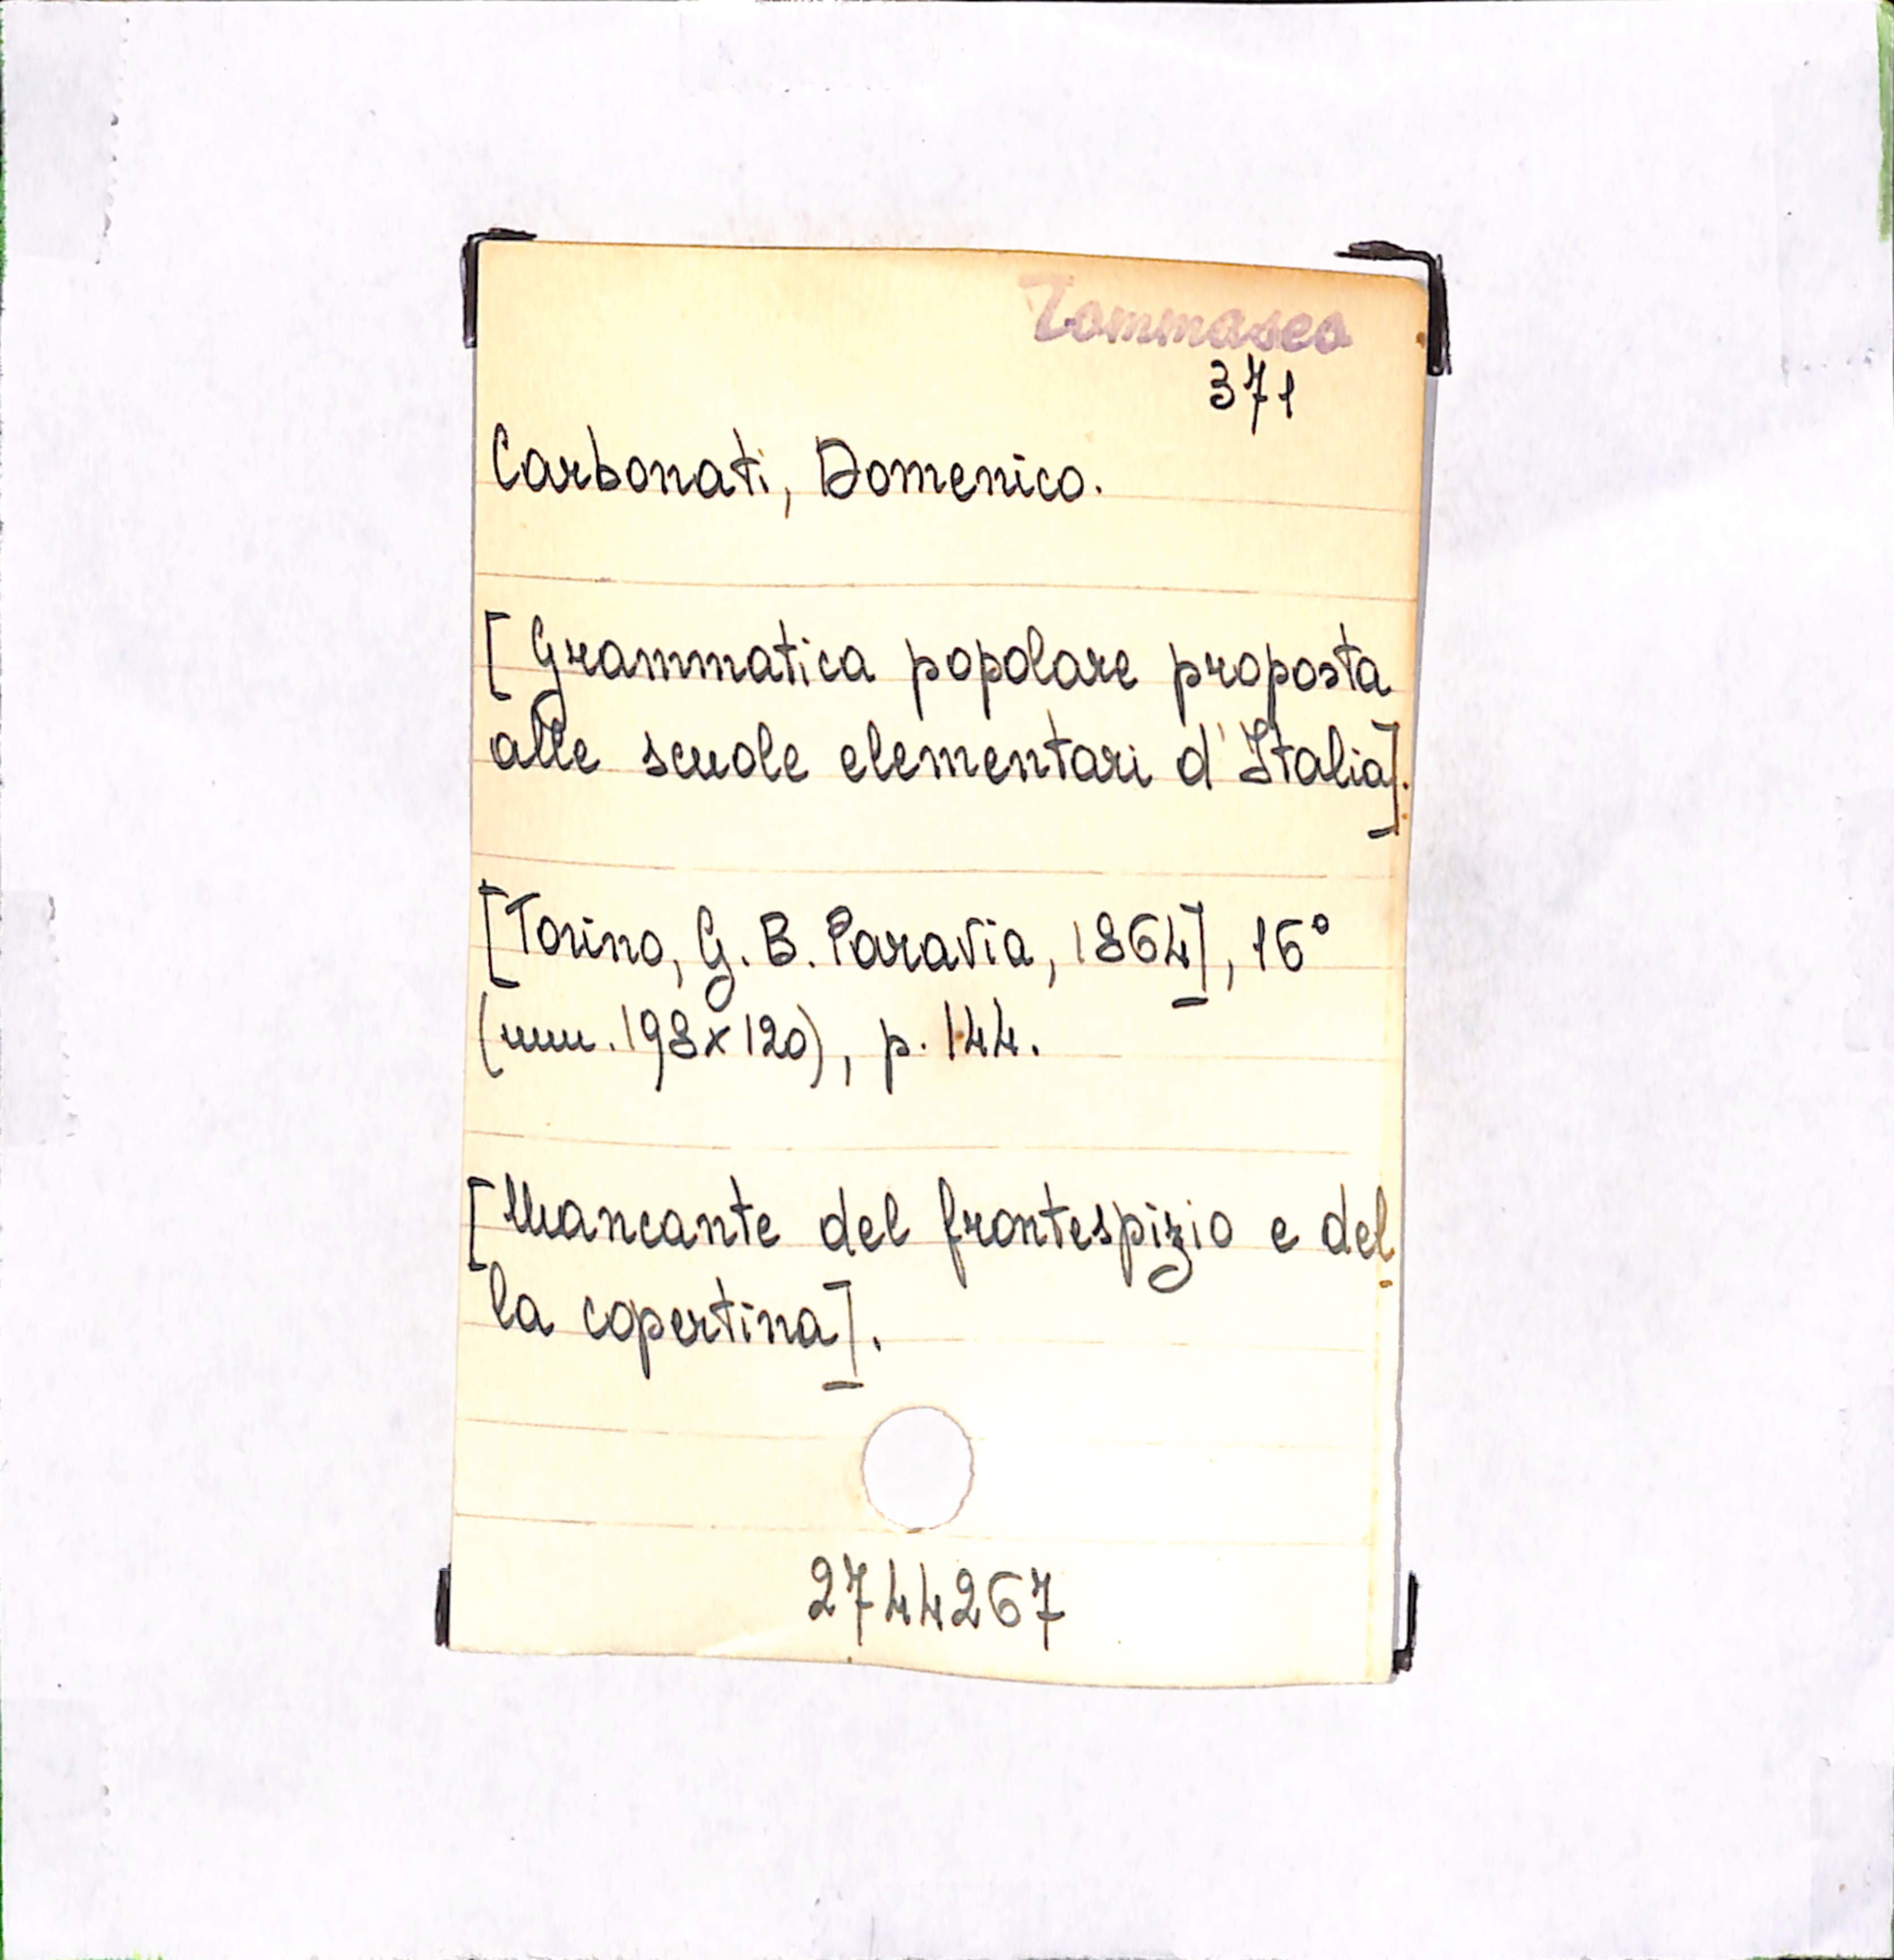 Tommaseo
371
Carbonati, Domenico.
[Grammatica popolare proposta
alle scuole elementari d'Italia].
[Torino, G. B. Paravia, 1864], 16°
(mm. 198x120), p. 144.
[Mancante del frontespizio e del
la copertina].
2744267